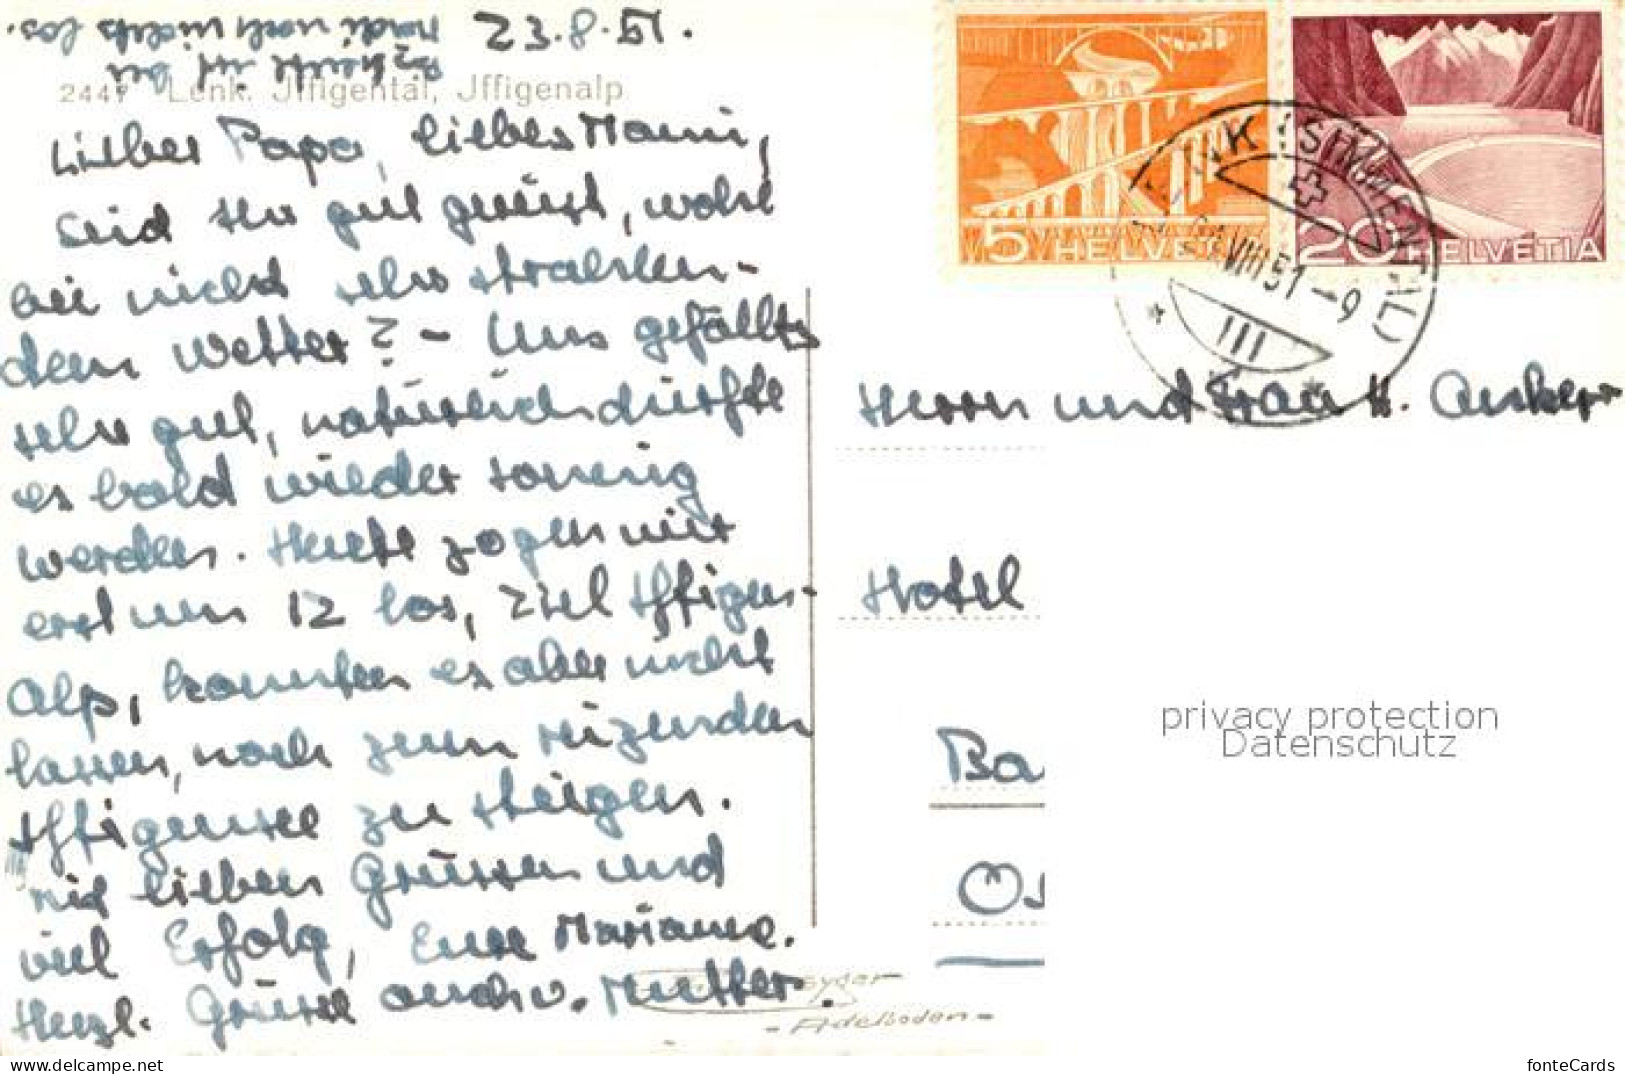 23.8.51.
nach noch nichts los.
2447 Lenk. Jffigental, Jffigenalp
Lieber Papa, liebes Mami,
Seid Ihr gut gereist, wohl
bei nicht sehr strahlen-
dem Wetter? - Uns gefällts
sehr gut, natürlich dürfte
es bald wieder sonnig
werden. Heute zogen wir
erst um 12 los, Ziel Iffigen-
Alp, konnten es aber nicht
lassen, noch zum reizenden
Iffigensee zu steigen.
Mit lieben Grüssen und
viel Erfolg, Eure Marianne.
Herzl. Grüsse auch v. Mutter.
Adelboden
5 HELVETIA
20 HELVETIA
LENK (SIMMENTAL)
VIII 51 - 9
Herrn und Frau H. Anker
Hotel
Ba
Os
privacy protection
Datenschutz
fonteCards